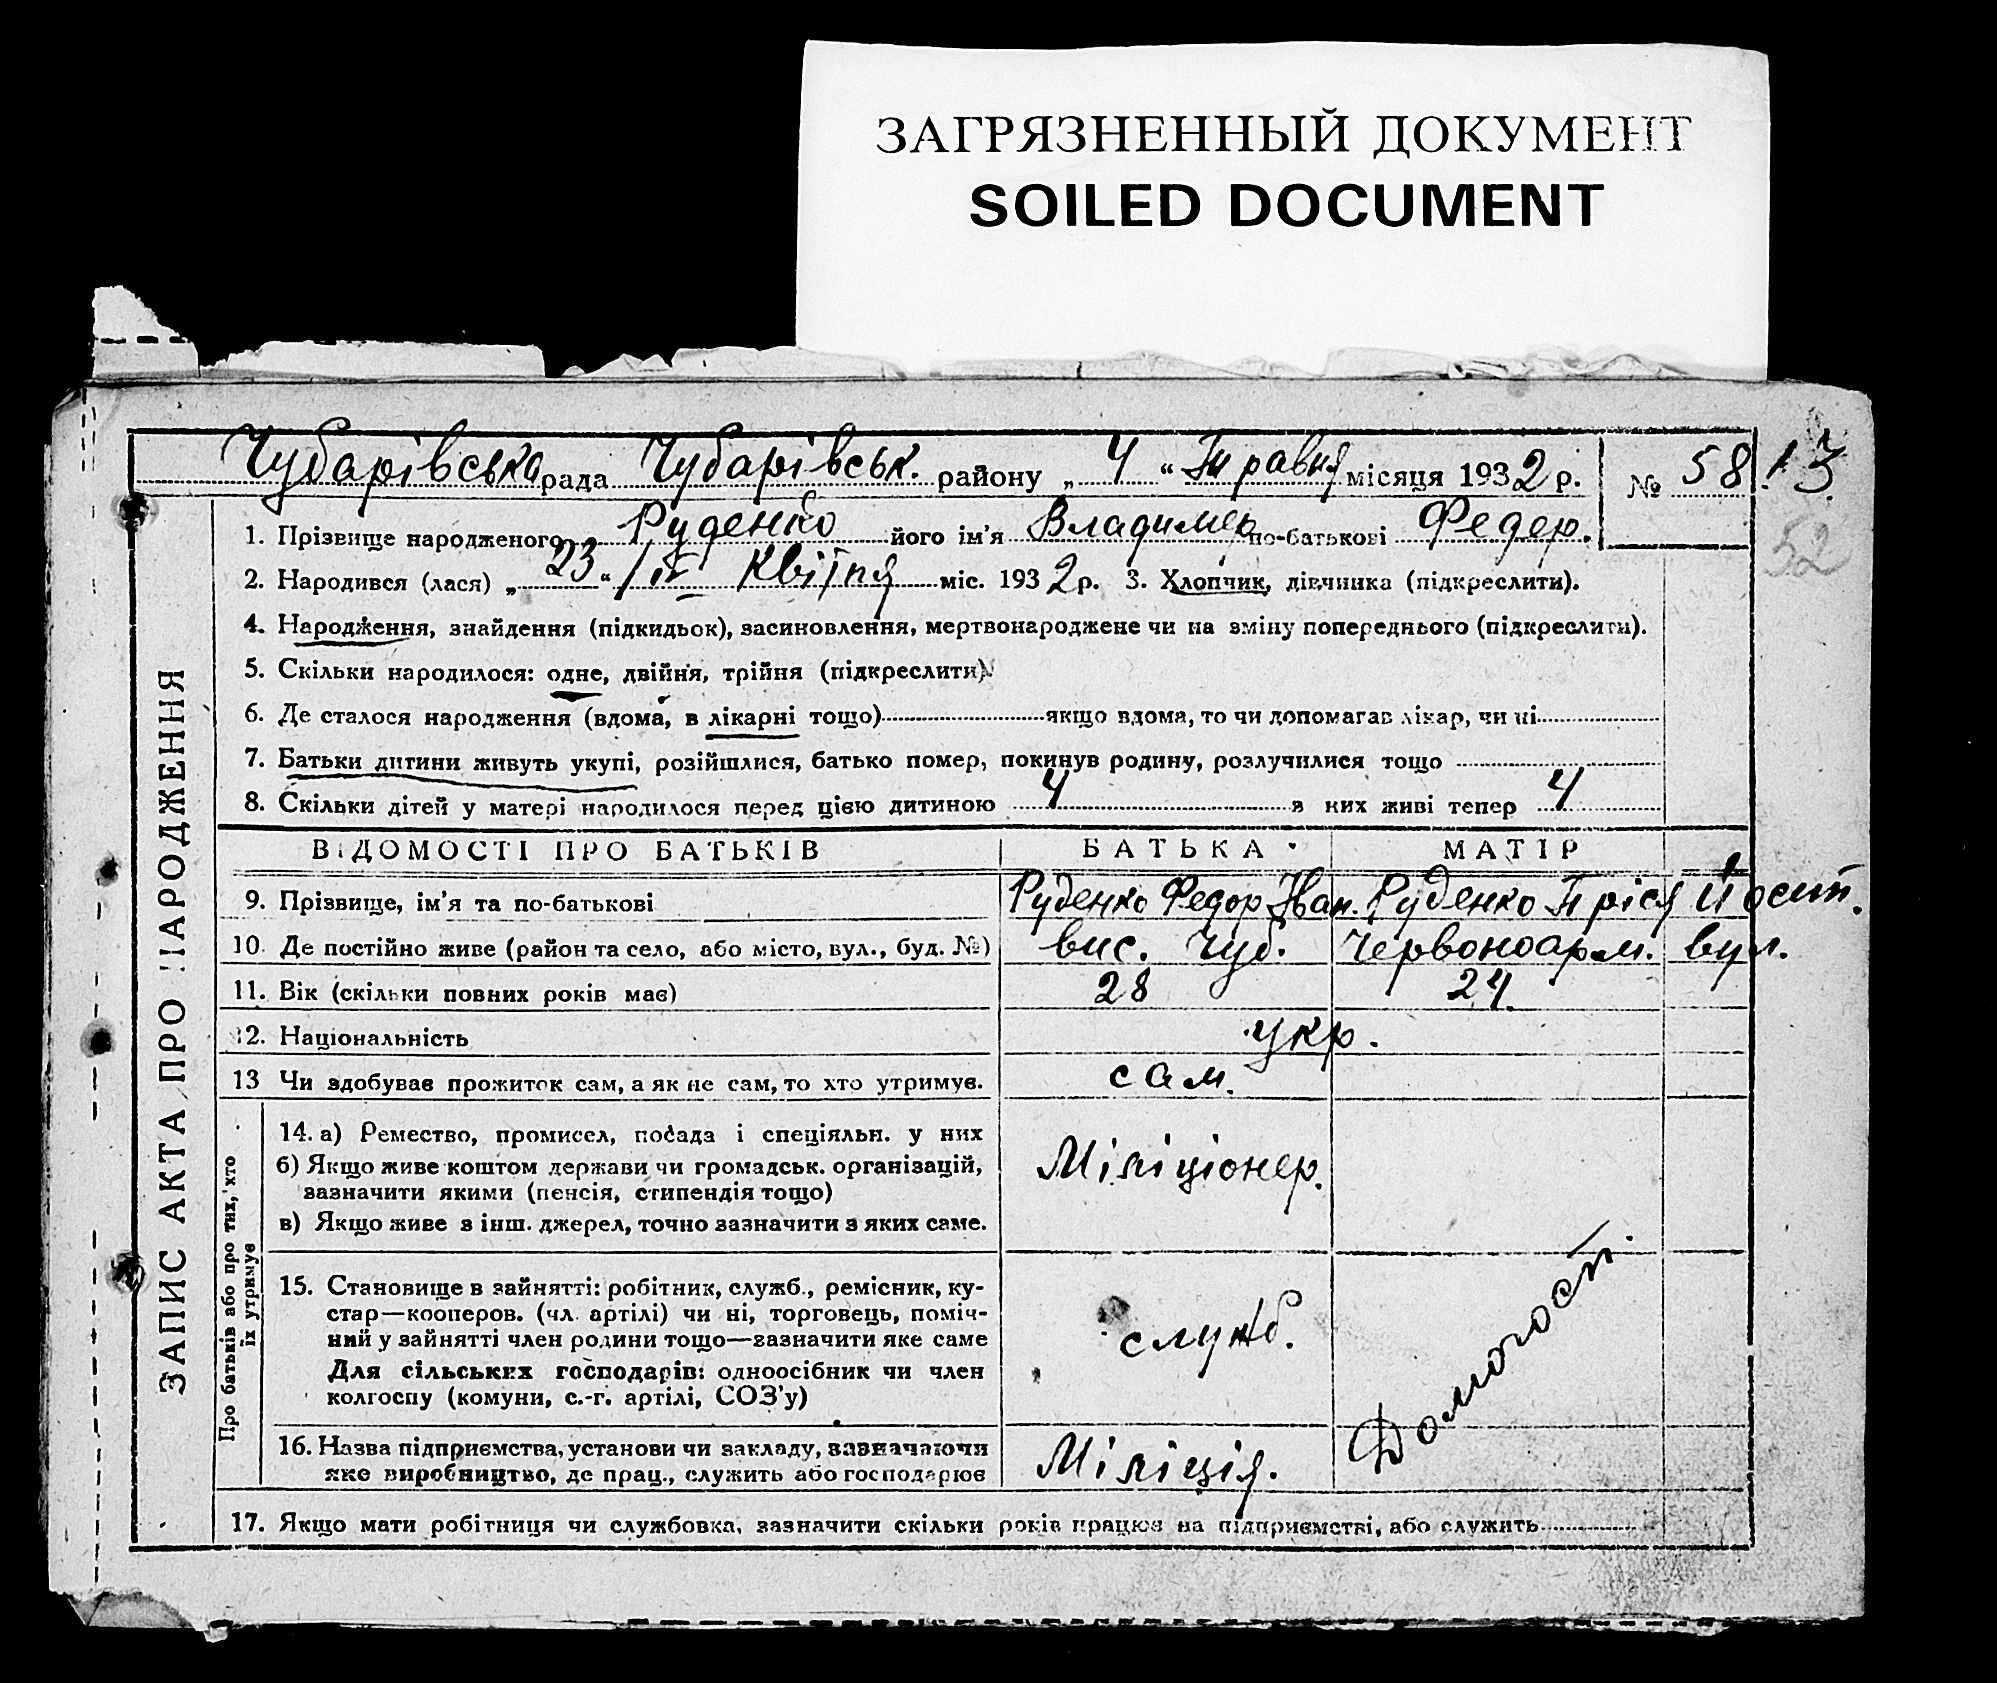 ЗАГРЯЗНЕННЫЙ ДОКУМЕНТ
SOILED DOCUMENT
Чубарівська рада Чубарівськ. району „ 4 “ Травня місяця 1932 р. № 58 13
52
1. Прізвище народженого Руденко його ім'я Владимер по-батькові Федер.
2. Народився (лася) „ 23 “ / IV Квітня міс. 1932 р. 3. Хлопчик, дівчинка (підкреслити).
4. Народження, знайдення (підкидьок), засиновлення, мертвонароджене чи на зміну попереднього (підкреслити).
5. Скільки народилося: одне, двійня, трійня (підкреслити).
6. Де сталося народження (вдома, в лікарні тощо) якщо вдома, то чи допомагав лікар, чи ні
7. Батьки дитини живуть укупі, розійшлися, батько помер, покинув родину, розлучилися тощо
8. Скільки дітей у матері народилося перед цією дитиною 4 з них живі тепер 4
ВІДОМОСТІ ПРО БАТЬКІВ БАТЬКА МАТІР
9. Прізвище, ім'я та по-батькові Руденко Федор Іван. Руденко Пріся Йосип.
10. Де постійно живе (район та село, або місто, вул., буд. №) вис. Чуб. Червоноарм. вул.
11. Вік (скільки повних років має) 28 24.
12. Національність укр.
13 Чи здобував прожиток сам, а як не сам, то хто утримує. сам.
14. а) Ремество, промисел, посада і спеціяльн. у них
б) Якщо живе коштом держави чи громадськ. організацій,
зазначити якими (пенсія, стипендія тощо)
в) Якщо живе з інш. джерел, точно зазначити з яких саме.
Міліціонер.
15. Становище в зайнятті: робітник, служб., ремісник, ку-
стар—кооперов. (чл. артілі) чи ні, торговець, поміч-
ний у зайнятті член родини тощо—зазначити яке саме
Для сільських господарів: одноосібник чи член
колгоспу (комуни, с.-г. артілі, СОЗ'у)
служб.
16. Назва підприємства, установи чи закладу, зазначаючи
яке виробництво, де прац., служить або господарює
Міліція.
17. Якщо мати робітниця чи службовка, зазначити скільки років працює на підприємстві, або служить
ЗАПИС АКТА ПРО НАРОДЖЕННЯ
Про батьків або про тих, хто
їх утримує